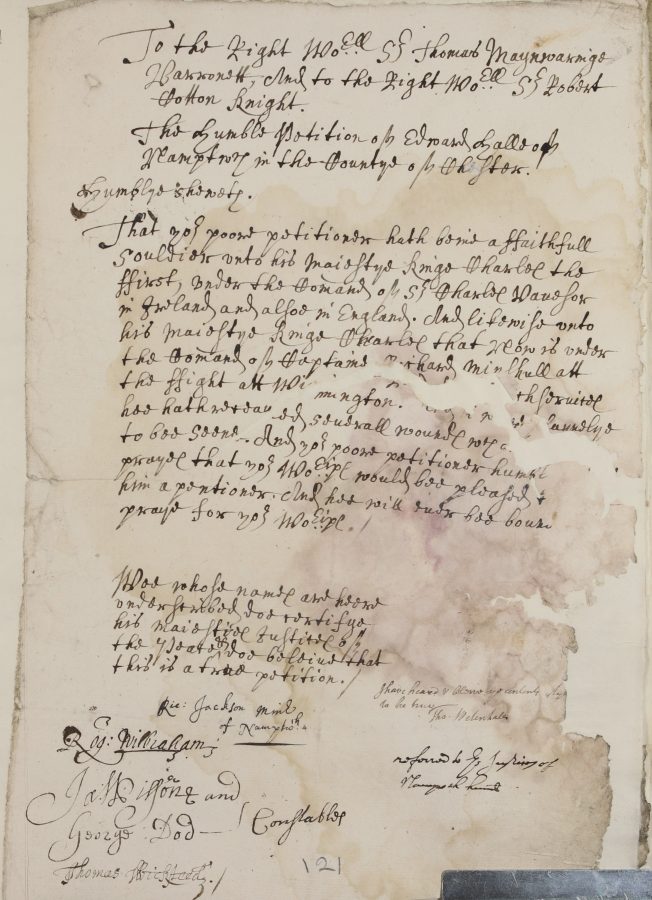 To the Right Wo:ll Sr Thomas Maynwaringe
Barronett, And to the Right Wo:ll Sr Robert
Cotton Knight.
The humble Petition off Edward Halle off
Namptwch in the Countye off Chester.
Humblye sheweth.
That yor poore petitioner hath beine a ffaithfull
souldier vnto his Maiestye Kinge Charles the
ffirst, vnder the Comand off Sr Charles Vavesor
in Ireland and alsoe in England. And likewise vnto
his Maiestye Kinge Charles that Now is vnder
the Comand off Captaine Richard Minshull att
the ffight att Wi mington. services
hee hath receaued severall wounds
to bee seene. And yor poore petitioner humbl
prayes that yor Wo:ips would bee pleased t
him a pentioner. And hee will ever bee boun
praye for yor Wo:ips.
Wee whose names are heere
vnderscribed doe certifye
his Maiesties Justices off
the Peace & doe beleive that
this is a true petition.
Ric: Jackson Minr
of Namptich
Rog: Wilbraham
I have heard & beleive ye contents
to be true
Tho: Welenhall
referred to ye Justices of
and
George Dod Constables
Thomas Wicksteed
121